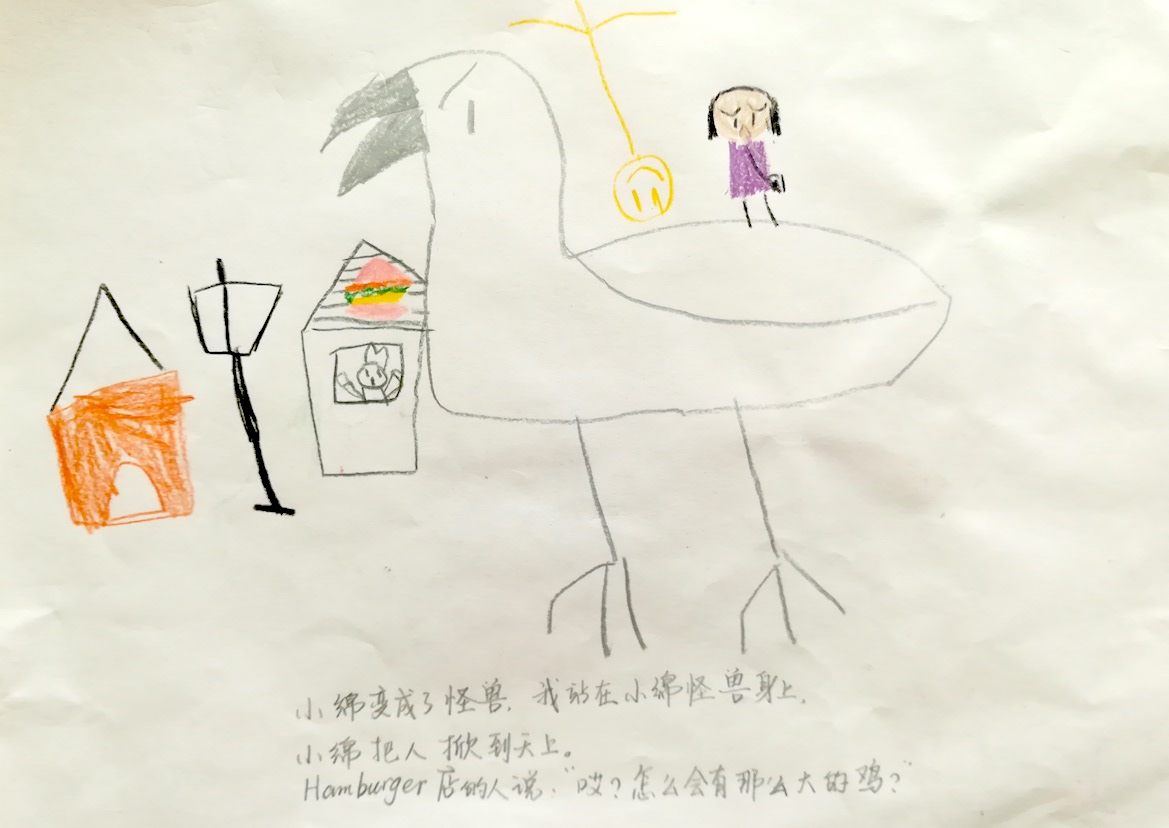 小绵变成了怪兽，我站在小绵怪兽身上，
小绵把人掀到天上。
Hamburger店的人说："哎？怎么会有那么大的鸡？"